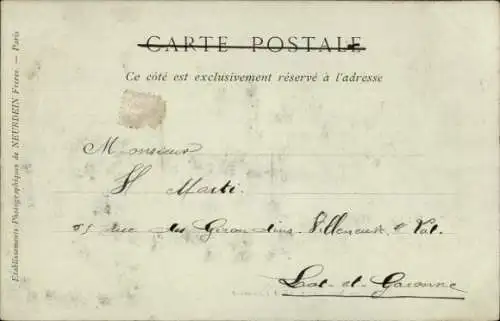 CARTE POSTALE
Ce côté est exclusivement réservé à l'adresse
Monsieur
H Marti.
rue des Girondins. Villeneuve s Lot.
Lot-et-Garonne
Etablissements Photographiques de NEURDEIN Frères. — Paris